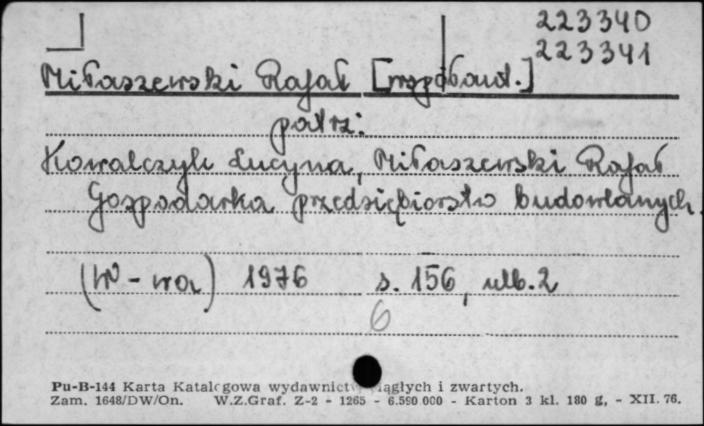 223340
223341
Miłaszewski Rafał [współaut.]
patrz:
Kowalczyk Lucyna, Miłaszewski Rafał
Gospodarka przedsiębiorstw budowlanych.
(W-wa) 1976 s. 156, nlb. 2
6
Pu-B-144 Karta Katalogowa wydawnictw ciągłych i zwartych.
Zam. 1648/DW/On. W.Z.Graf. Z-2 - 1265 - 6.590 000 - Karton 3 kl. 180 g, - XII. 76.